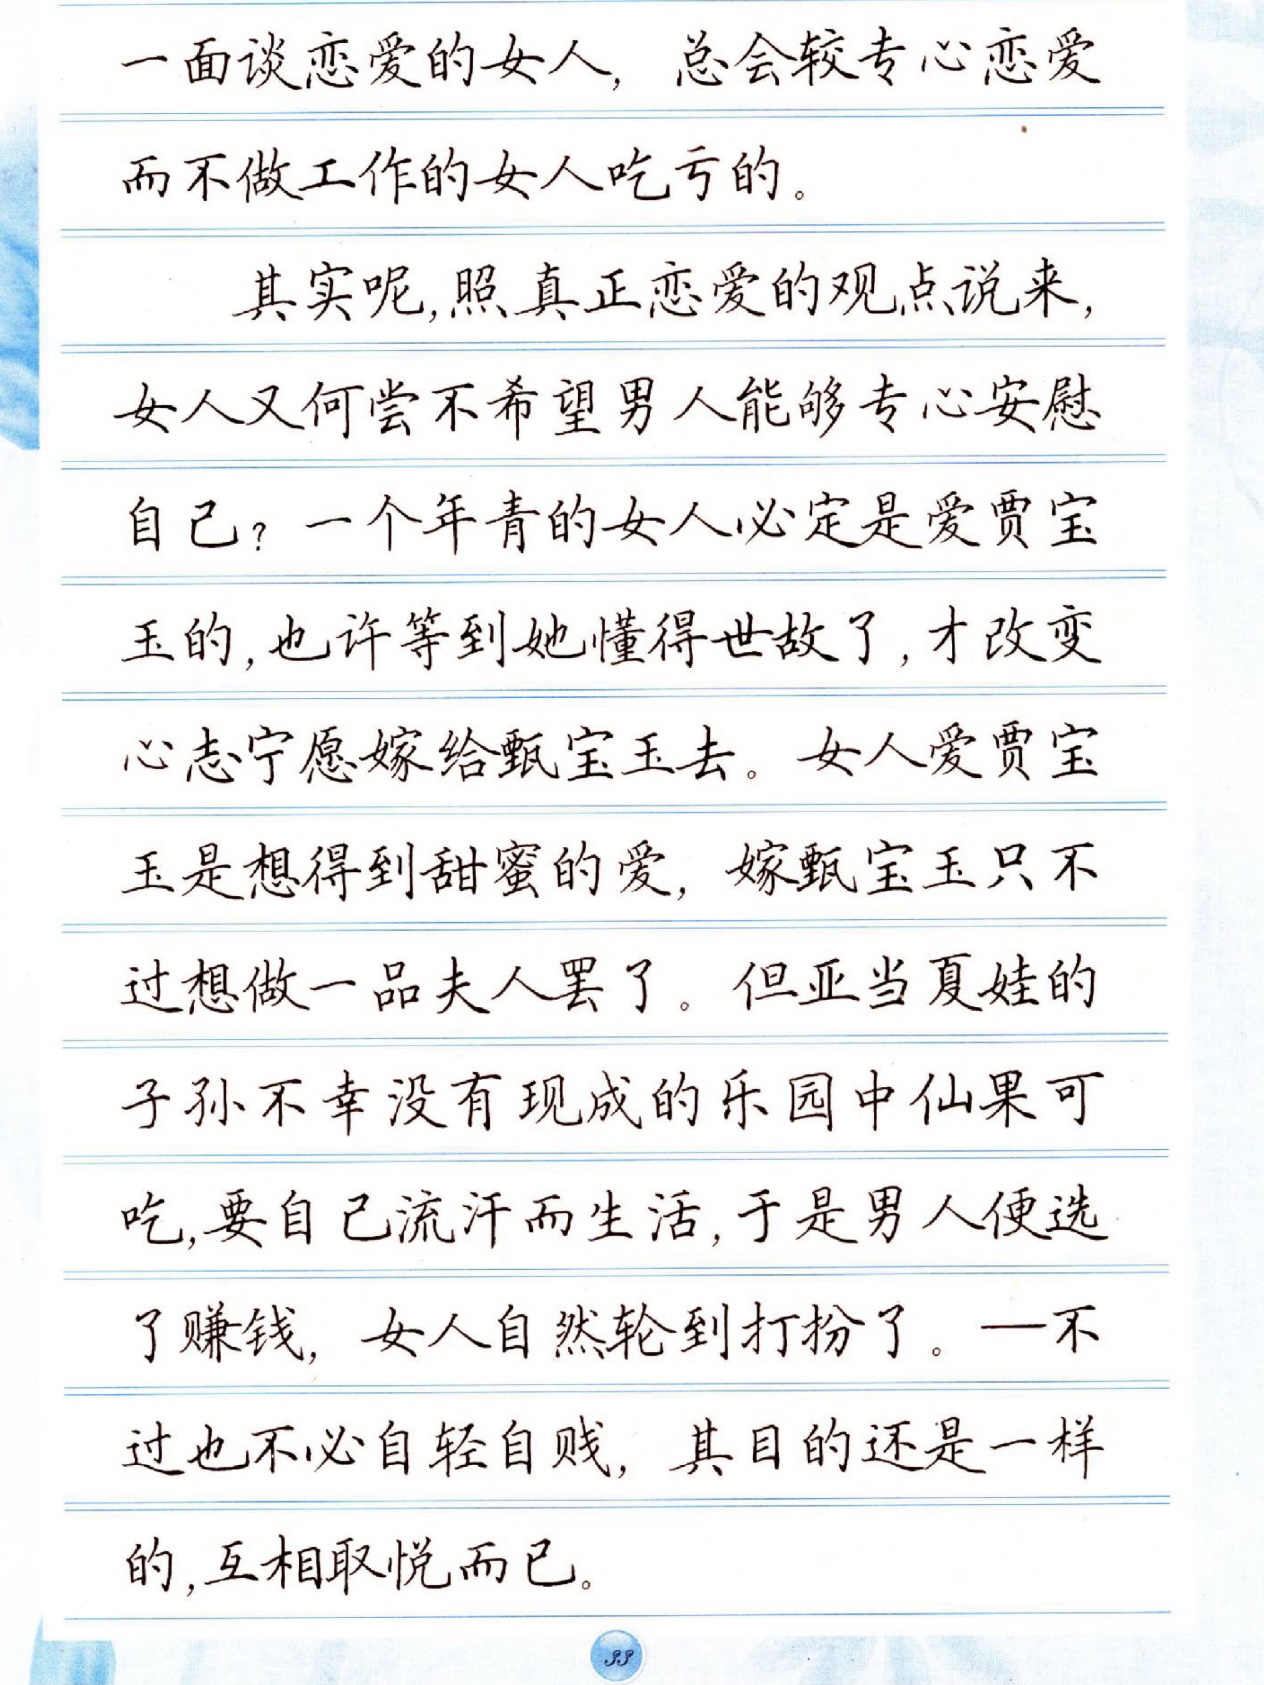 一面谈恋爱的女人，总会较专心恋爱
而不做工作的女人吃亏的。
其实呢，照真正恋爱的观点说来，
女人又何尝不希望男人能够专心安慰
自己？一个年青的女人必定是爱贾宝
玉的，也许等到她懂得世故了，才改变
心志宁愿嫁给甄宝玉去。女人爱贾宝
玉是想得到甜蜜的爱，嫁甄宝玉只不
过想做一品夫人罢了。但亚当夏娃的
子孙不幸没有现成的乐园中仙果可
吃，要自己流汗而生活，于是男人便选
了赚钱，女人自然轮到打扮了。—不
过也不必自轻自贱，其目的还是一样
的，互相取悦而已。
33